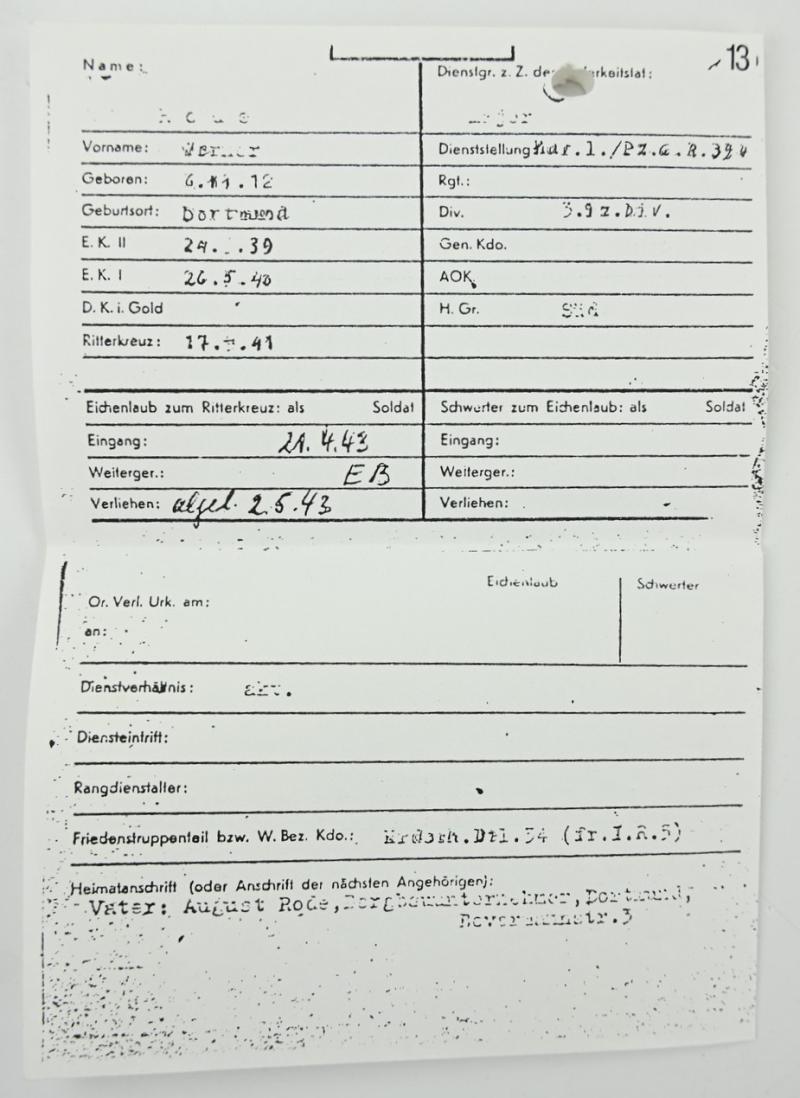 13
Name:
Dienstgr. z. Z. der
Vorname: Werner
Dienststellung
Geboren: 6.11.12
Rgt.:
Geburtsort: Dortmund
Div. 3.Pz.Div.
E. K. II 39
Gen. Kdo.
E. K. I 26.5.40
AOK
D. K. i. Gold
H. Gr. Süd
Ritterkreuz: 17. .41
Eichenlaub zum Ritterkreuz: als Soldat
Schwerter zum Eichenlaub: als Soldat
Eingang: 21.4.43
Eingang:
Weiterger.: EB
Weiterger.:
Verliehen: abgel. 2.5.43
Verliehen:
Eichenlaub Schwerter
Or. Verl. Urk. am:
an:
Dienstverhältnis: akt.
Diensteintritt:
Rangdienstalter:
Friedenstruppenteil bzw. W. Bez. Kdo.: (fr.I.R.5)
Heimatanschrift (oder Anschrift der nächsten Angehörigen):
Vater: August Rode, Dortmund,